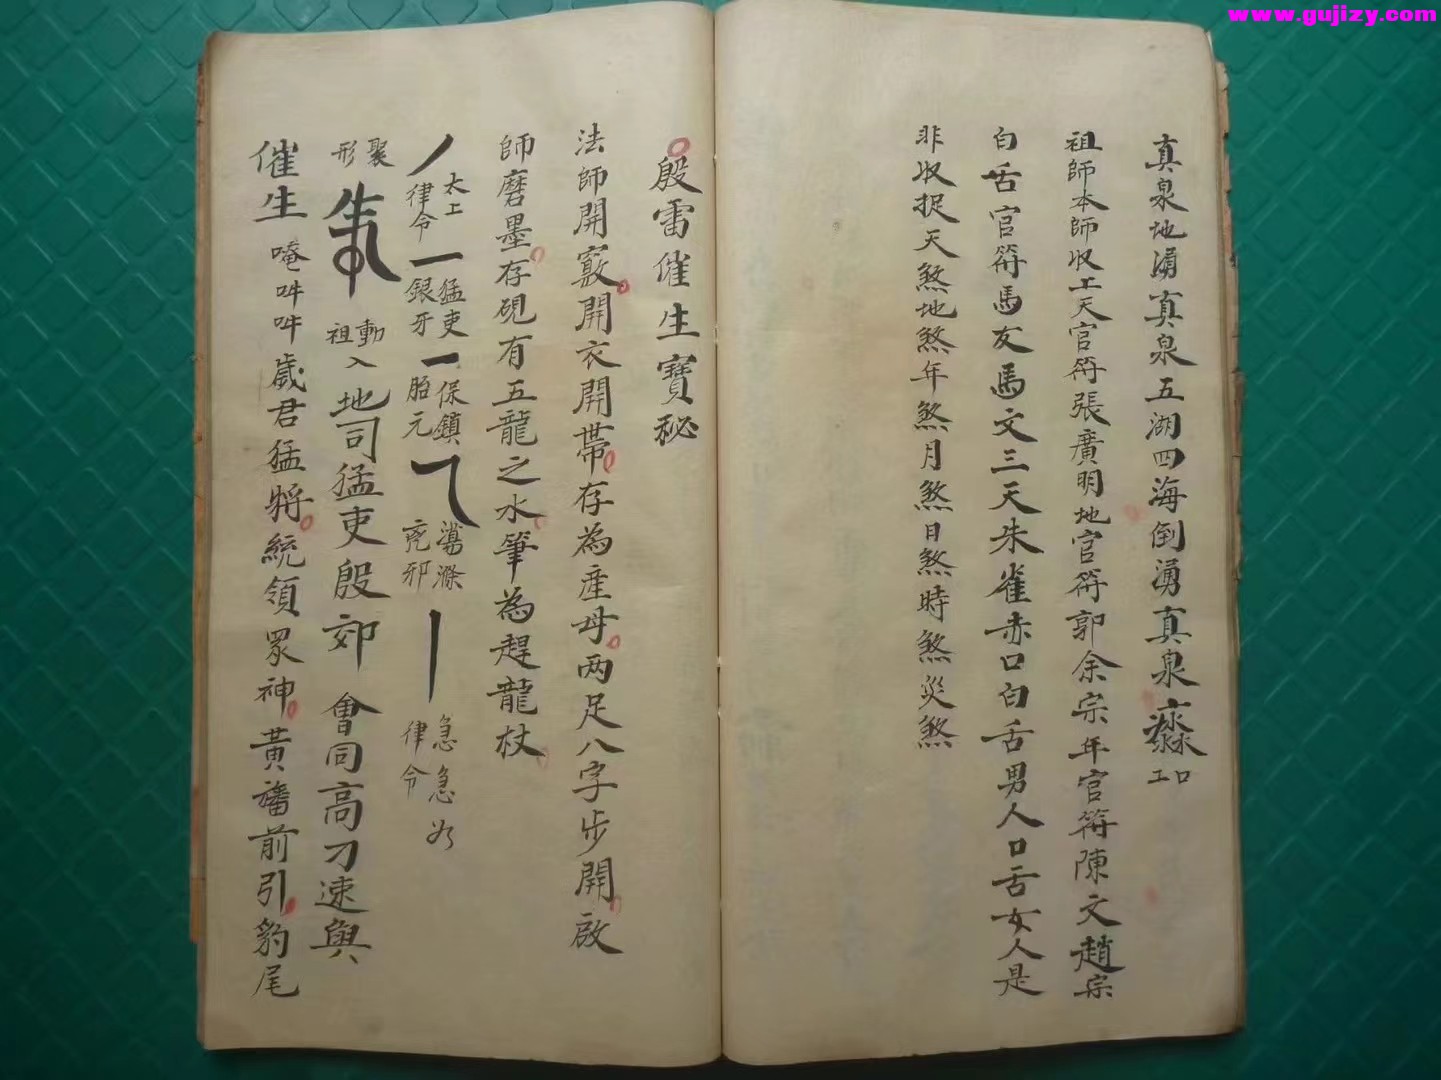 www.gujizy.com
真泉地湧真泉五湖四海倒湧真泉
口工
祖師本師收工天官符張廣明地官符郭余宗年官符陳文趙宗
白舌官符馬友馬文三天朱雀赤口白舌男人口舌女人是
非收捉天煞地煞年煞月煞日煞時煞災煞
殷雷催生寶秘
法師開竅開衣開帶存為産母两足八字步開啟
師磨墨存硯有五龍之水筆為趕龍杖
太工
律令
猛吏
銀牙
保鎮
胎元
盪滌
兇邪
急急如
律令
聚
形
動
祖
入地司猛吏殷郊會同高刁速與
催生唵吽吽歲君猛將統領眾神黃旛前引豹尾